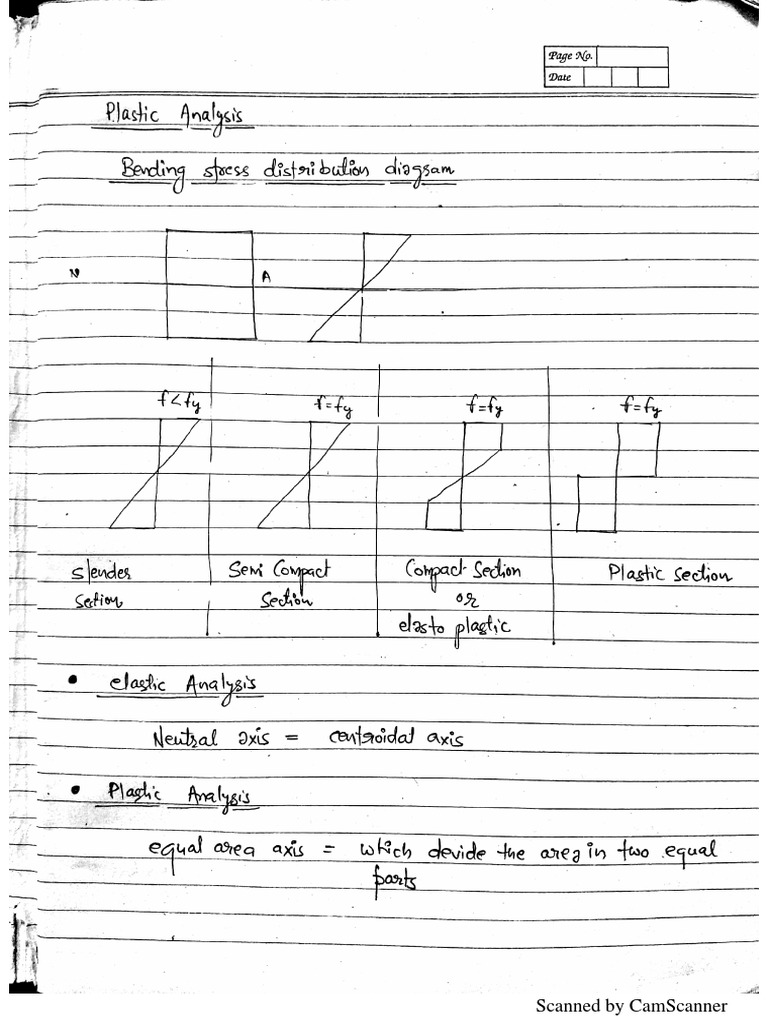 Page No.
Date
Plastic Analysis
Bending stress distribution diagram
N
A
f < fy
f = fy
f = fy
f = fy
Slender
Section
Semi Compact
Section
Compact Section
or
elasto plastic
Plastic section
• elastic Analysis
Neutral axis = centroidal axis
• Plastic Analysis
equal area axis = which devide the area in two equal
parts
Scanned by CamScanner